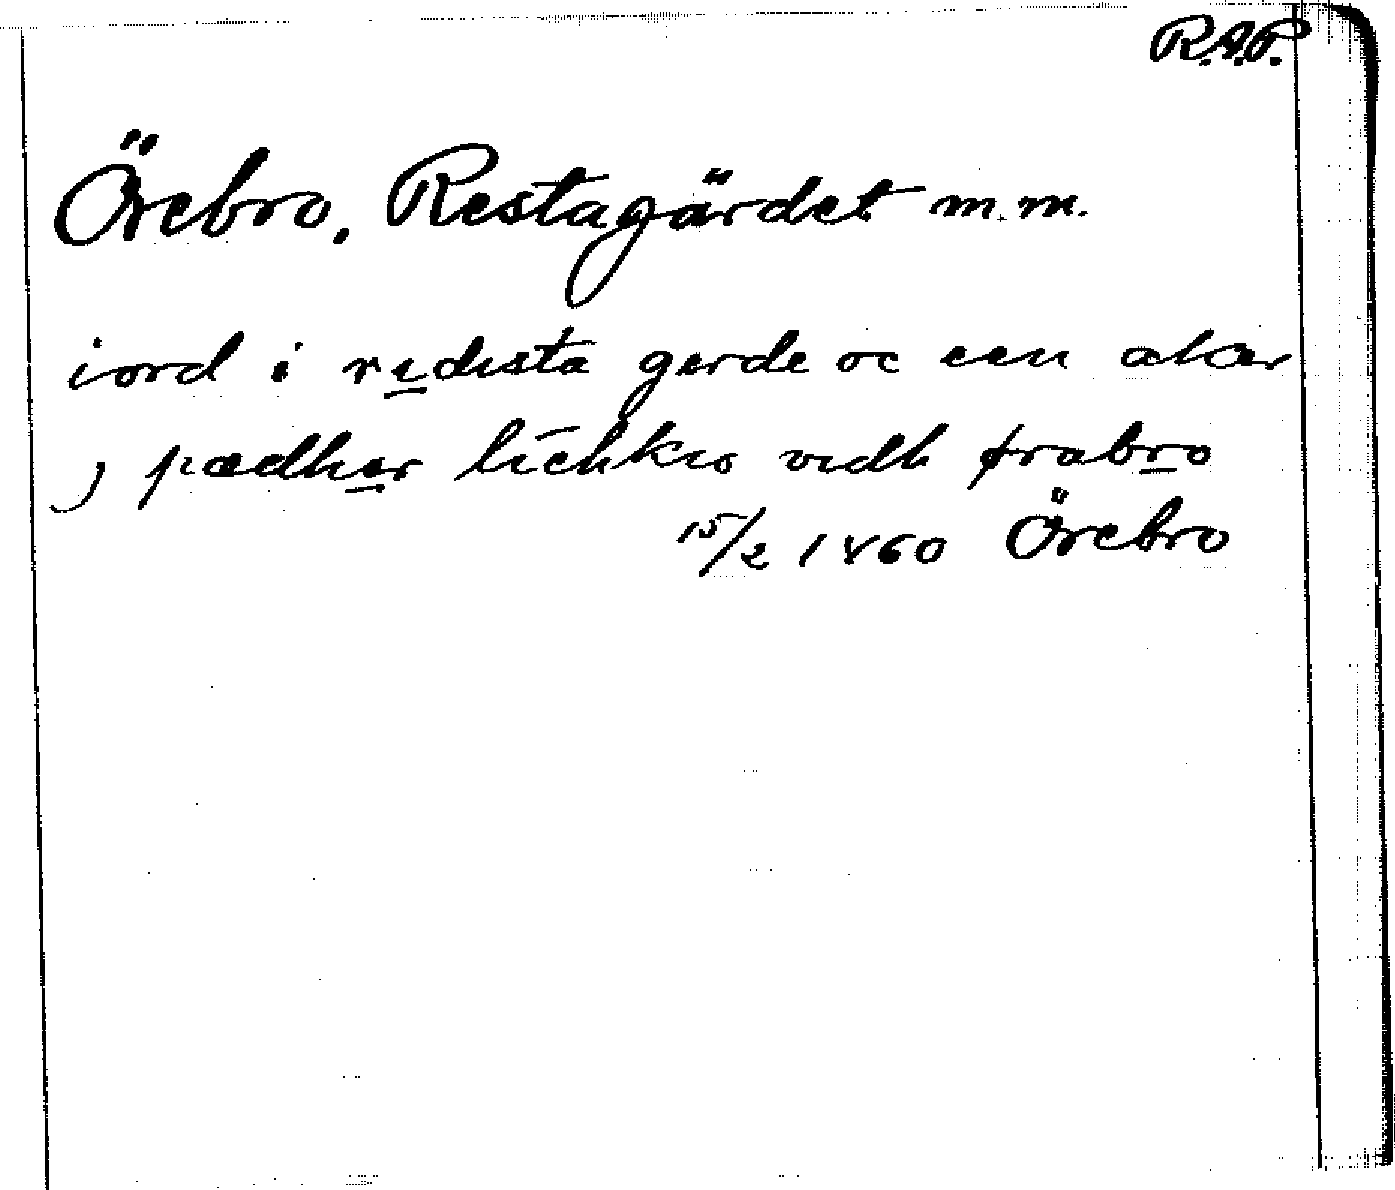 R.A.P.
Örebro, Restagärdet m.m.
iord i redista gerde oc een aker
j pædher vidh ørabro
15/2 1460 Örebro